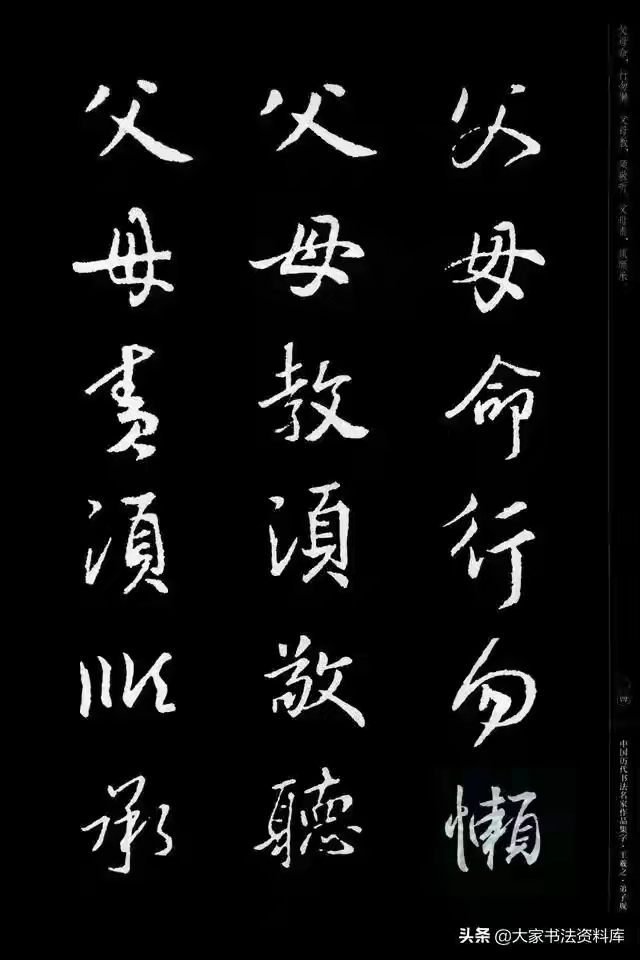 父母命行勿懶
父母教須敬聽
父母責須順承
父母命，行勿懒　父母教，须敬听　父母责，须顺承
四
中国历代书法名家作品集字·王羲之·弟子规
头条 @大家书法资料库